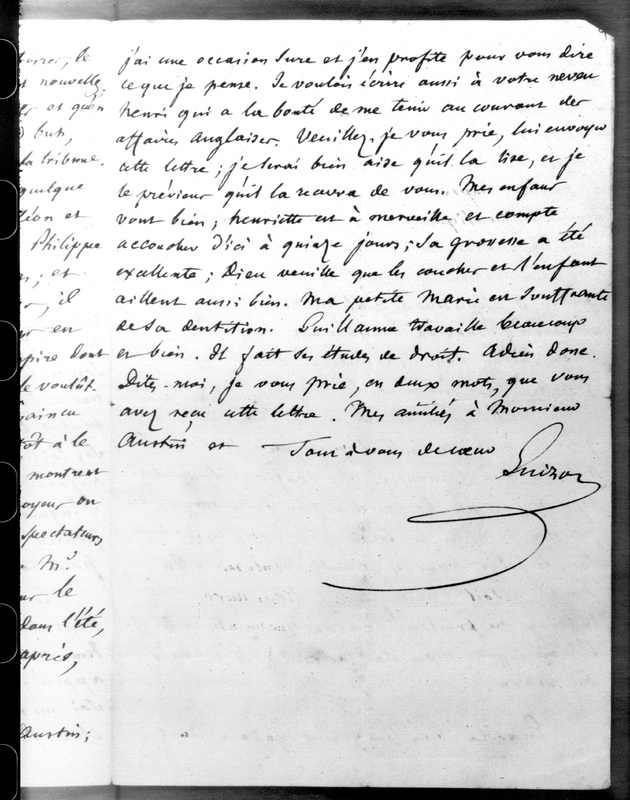 j'ai une occasion sure et j'en profite pour vous dire
ce que je pense. Je voulois écrire aussi à votre neveu
henri qui a la bonté de me tenir au courant des
affaires anglaises. Veuillez, je vous prie, lui envoyer
cette lettre ; je serai bien aise qu'il la lise, et je
le préviens qu'il la recevra de vous. Mes enfans
vont bien ; henriette est à merveille et compte
accoucher d'ici à quinze jours ; sa grossesse a été
excellente ; Dieu veuille que les couches et l'enfant
aillent aussi bien. Ma petite Marie est souffrante
de sa dentition. Guillaume travaille beaucoup
et bien. Il fait ses études de droit. Adieu donc.
Dites-moi, je vous prie, en deux mots, que vous
avez reçu cette lettre. Mes amitiés à Monsieur
Austin et Tout à vous de cœur
Guizot
le
nouvelle,
et qu'en
but,
la tribune.
quelque
et
Philippe
; et
, il
en
pire dont
le voulût.
vaincu
tôt à le
montrent
on
spectateurs
Mr
sur le
dans l'été,
après,
Austin ;